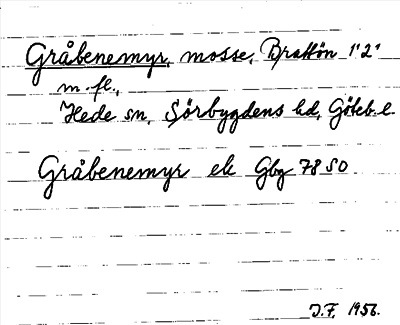 Gråbenemyr, mosse, Brattön 1'2'
m. fl.,
Hede sn, Sörbygdens hd, Göteb. l.
Gråbenemyr ek Gbg 78 SO
J.F. 1956.